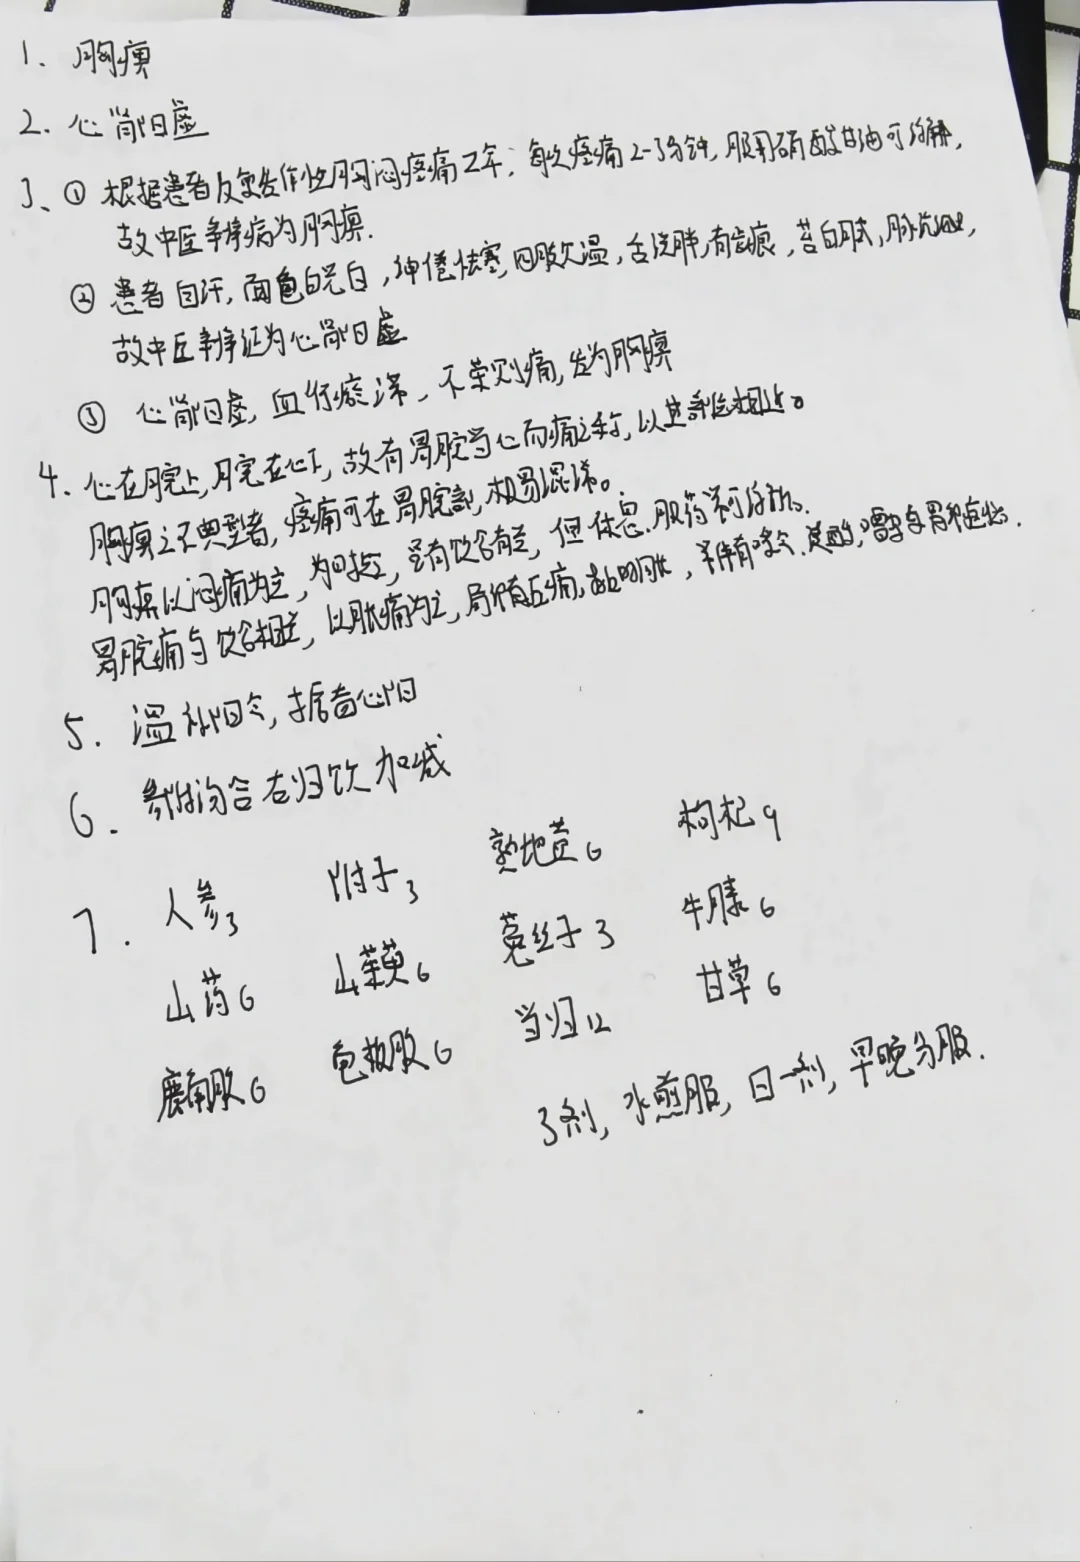 1. 胸痹
2. 心肾阳虚
3、① 根据患者反复发作性胸闷疼痛2年；每次疼痛2-3分钟，服用硝酸甘油可缓解，
故中医辨病为胸痹.
② 患者自汗，面色㿠白，神倦怯寒，四肢欠温，舌淡胖，有齿痕，苔白腻，脉沉细迟，
故中医辨证为心肾阳虚
③ 心肾阳虚，血行瘀滞、不荣则痛，发为胸痹
4、心在脘上，脘在心下，故有胃脘当心而痛之称，以其部位相近。
胸痹之不典型者，疼痛可在胃脘部，极易混淆。
胸痹以闷痛为主，为时短，虽有饮食有关，但休息、服药常可缓解.
胃脘痛与饮食相关，以胀痛为主，局部有压痛，持续时间长，常伴有嗳气、泛酸，嘈杂等胃部症状.
5. 温补阳气，振奋心阳
6. 参附汤合右归饮加减
7. 人参3 附子3 熟地黄6 枸杞9
山药6 山茱萸6 菟丝子3 牛膝6
鹿角胶6 龟板胶6 当归12 甘草6
3剂，水煎服，日一剂，早晚分服.